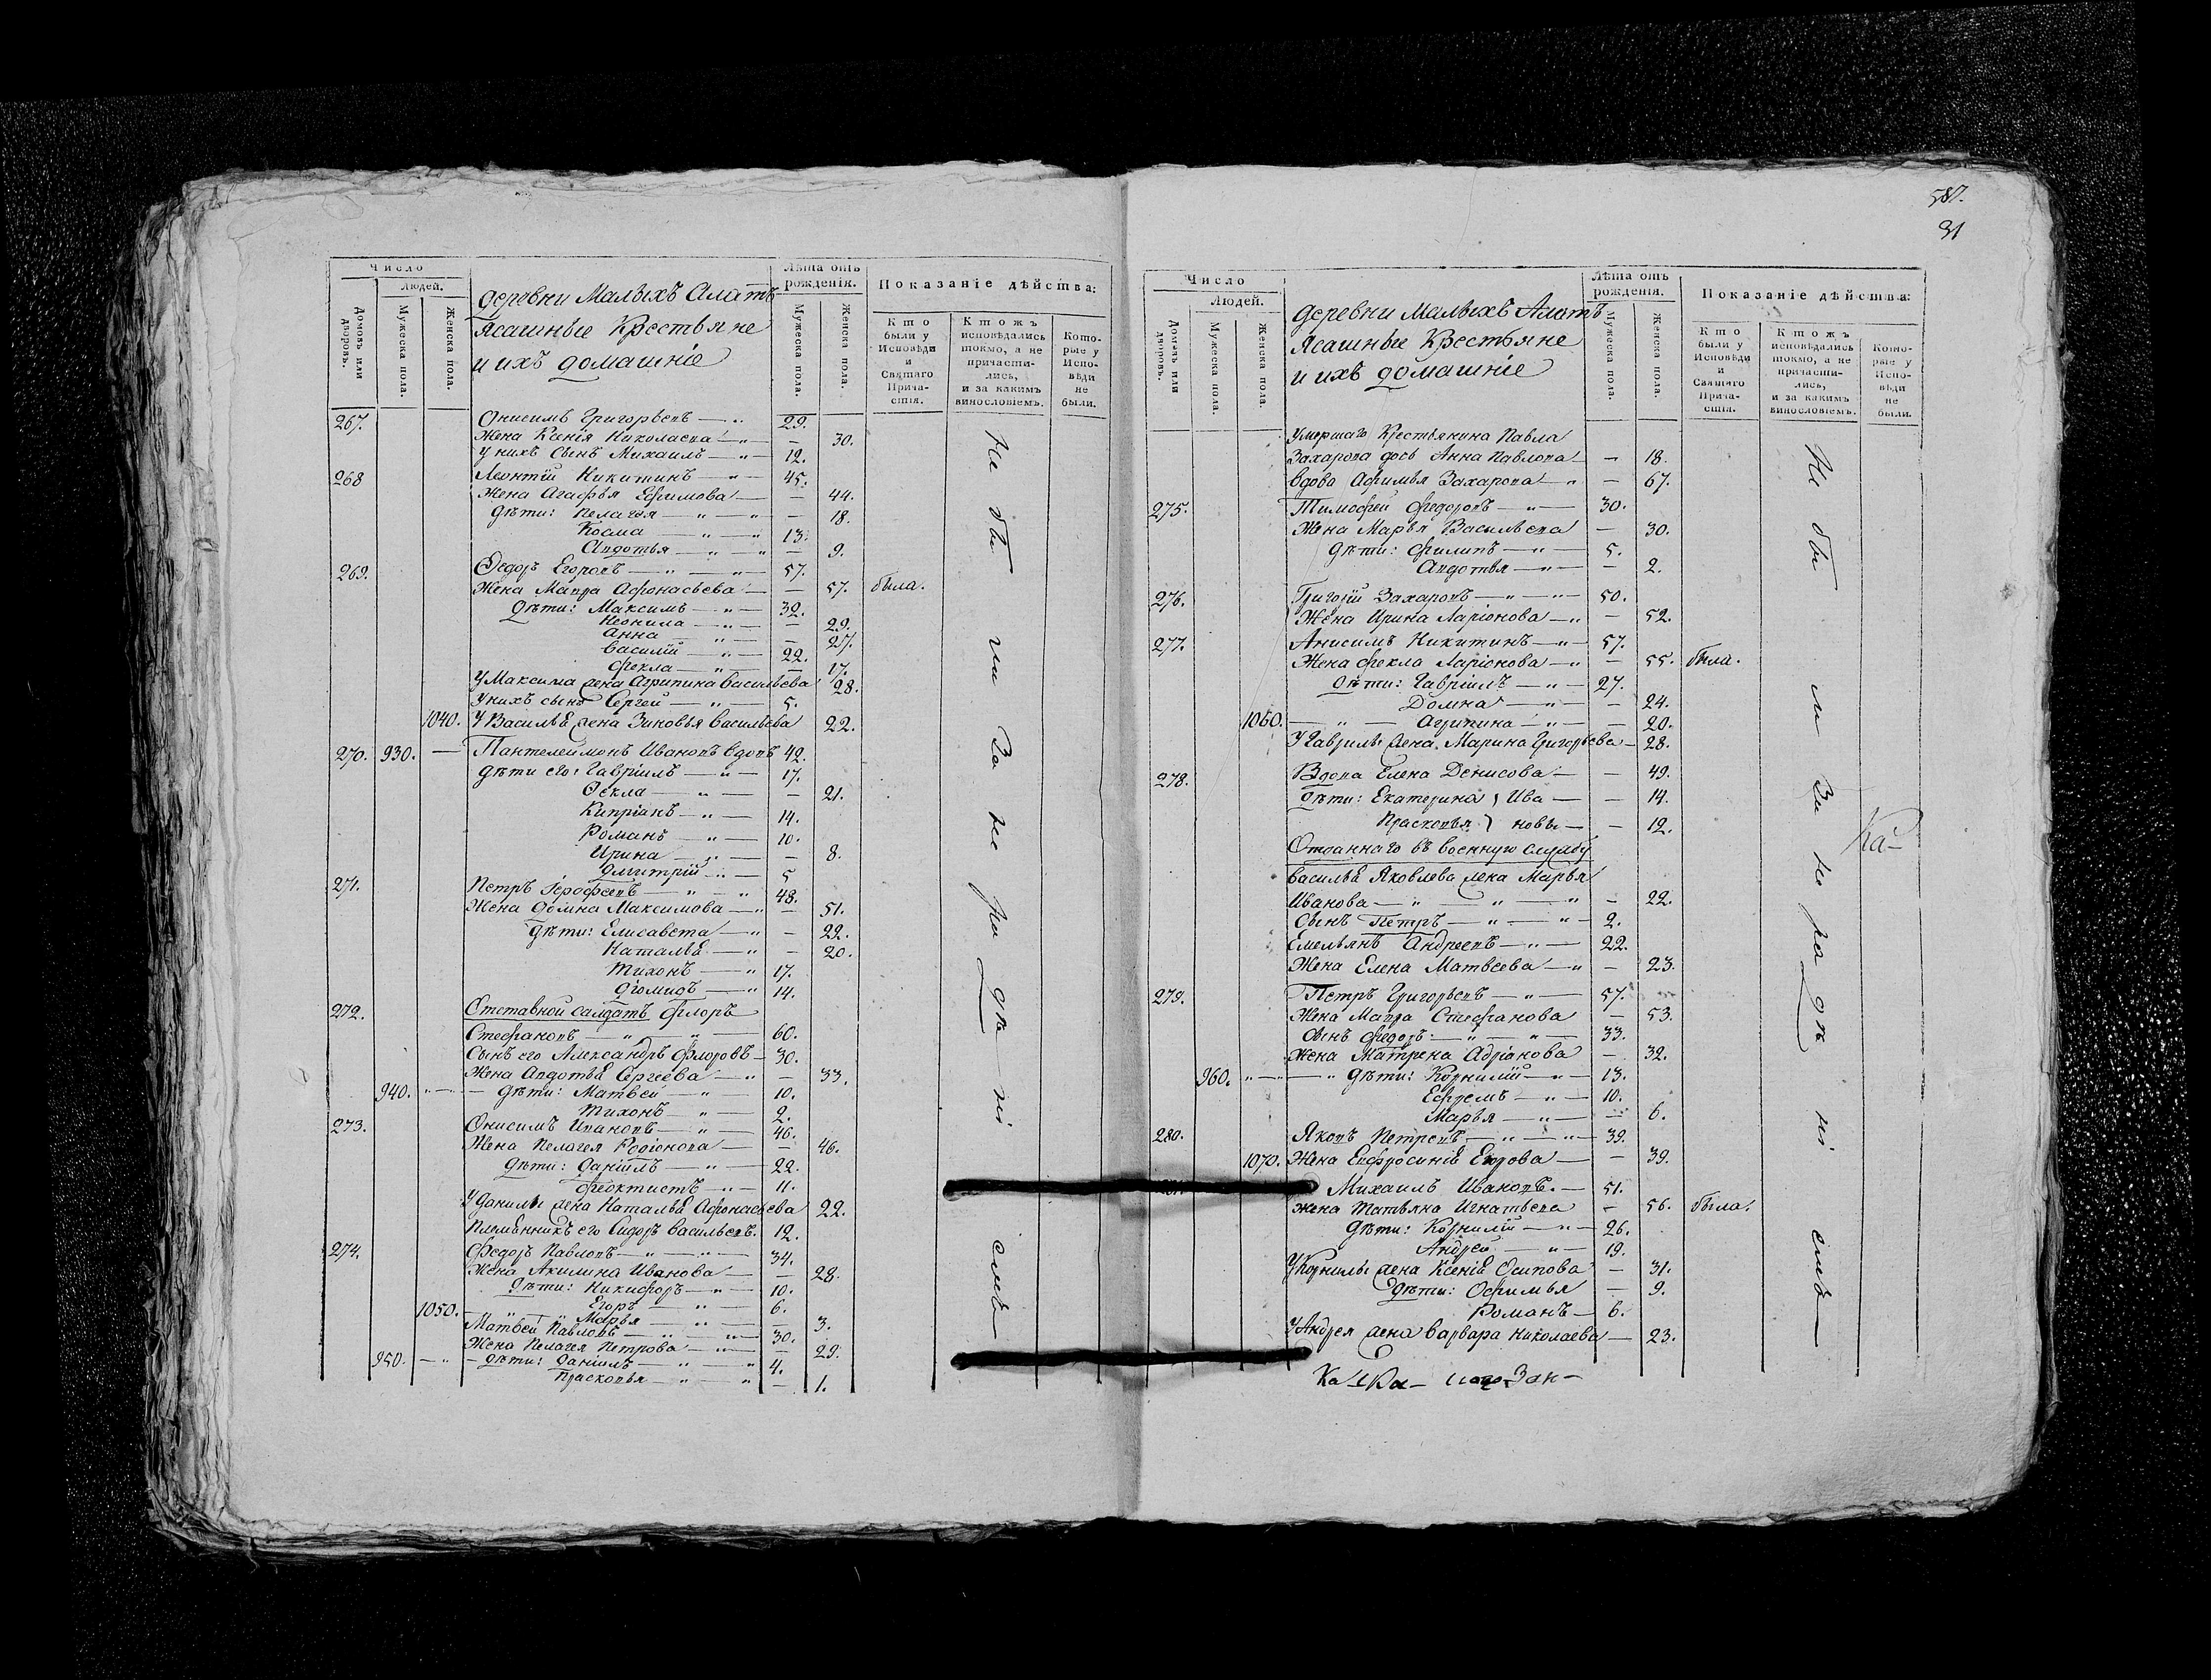 Число
Людей.
Домовъ или дворовъ.
Мужеска пола.
Женска пола.
деревни Малыхъ Алатъ
Ясашные Крестьяне
и ихъ домашніе
Лѣта отъ рожденія.
Мужеска пола.
Женска пола.
Показаніе дѣйства:
Кто были у Исповѣди и Святаго Причастія.
Ктожъ исповѣдались токмо, а не причастились, и за какимъ винословіемъ.
Которые у Исповѣди не были.
267. Онисимъ Григорьевъ — 29.
Жена Ксенія Николаева — 30.
У нихъ сынъ Михаилъ — 12.
268 Леонтій Никитинъ — 45.
Жена Агафья Ефимова — 44.
Дѣти: Пелагея — 18.
Косма — 13.
Авдотья — 9.
269. Ѳедоръ Егоровъ — 57.
Жена Мавра Афонасьева — 57. была.
Дѣти: Максимъ — 32.
Неонила — 29.
Анна — 27.
Василій — 22.
Фекла — 17.
У Максима жена Агрипина Васильева 28.
У нихъ сынъ Сергей — 5.
1040. У Василья жена Зиновья Васильева 22.
270. 930. — Пантелеймонъ Ивановъ вдовъ 42.
дѣти его: Гавріилъ — 17.
Ѳекла — 21.
Кипріанъ — 14.
Романъ — 10.
Ирина — 8.
Дмитрій — 5
271. Петръ Ерофеевъ — 48.
Жена Домна Максимова — 51.
Дѣти: Елисавета — 22.
Наталья — 20.
Тихонъ — 17.
Діомидъ — 14.
272. Отставной салдатъ Флоръ
Стефановъ — 60.
Сынъ его Александръ Флоровъ — 30.
Жена Авдотья Сергеева — 33.
940. — дѣти: Матвей — 10.
Тихонъ — 2.
273. Онисимъ Ивановъ — 46.
Жена Пелагея Родіонова — 46.
Дѣти: Даніилъ — 22.
Феоктистъ — 11.
У Данилы жена Наталья Афонасьева 22.
Племянникъ его Сидоръ Васильевъ. 12.
274. Федоръ Павловъ — 34.
Жена Акилина Иванова — 28.
Дѣти: Никифоръ — 10.
Егоръ — 6.
1050. — Марья — 3.
Матвей Павловъ — 30.
Жена Пелагея Петрова — 29.
950. — дѣти: Даніилъ — 4.
Праскопья — 1.
Не были За нерадѣніемъ
587.
31
Число
Людей.
Домовъ или дворовъ.
Мужеска пола.
Женска пола.
деревни Малыхъ Алатъ
Ясашные Крестьяне
и ихъ домашніе
Лѣта отъ рожденія.
Мужеска пола.
Женска пола.
Показаніе дѣйства:
Кто были у Исповѣди и Святаго Причастія.
Ктожъ исповѣдались токмо, а не причастились, и за какимъ винословіемъ.
Которые у Исповѣди не были.
Умершаго Крестьянина Павла
Захарова дочь Анна Павлова — 18.
вдова Афимья Захарова — 67.
275. Тимофей Федоровъ — 30.
Жена Марья Васильева — 30.
Дѣти: Филипъ — 5.
Авдотья — 2.
276. Григорій Захаровъ — 50.
Жена Ирина Ларіонова — 52.
277. Анисимъ Никитинъ — 57.
Жена Фекла Ларіонова — 55. была.
Дѣти: Гавріилъ — 27.
Домна — 24.
1060. — Агрипина — 20.
У Гаврилы жена Марина Григорьева — 28.
278. Вдова Елена Денисова — 49.
Дѣти: Екатерина } Ива — 14.
Праскопья } новы — 12.
Отданнаго въ военную службу
Василья Яковлева жена Марья
Иванова — 22.
Сынъ Петръ — 2.
Емельянъ Андреевъ — 22.
Жена Елена Матвеева — 23.
279. Петръ Григорьевъ — 57.
Жена Мавра Стефанова — 53.
Сынъ Федоръ — 33.
Жена Матрена Адріанова — 32.
960. — дѣти: Корнилій — 13.
Ефремъ — 10.
Марья — 6.
280. Яковъ Петровъ — 39.
1070. Жена Евфросинія Егорова — 39.
Михаилъ Ивановъ. — 51.
Жена Татьяна Игнатьева — 56. была.
Дѣти: Корнилій — 26.
Андрей — 19.
У Корнилы жена Ксенія Осипова — 31.
Дѣти: Офимья — 9.
Романъ — 6.
У Андрея жена Варвара Николаева — 23.
Не были За нерадѣніемъ
Ка-